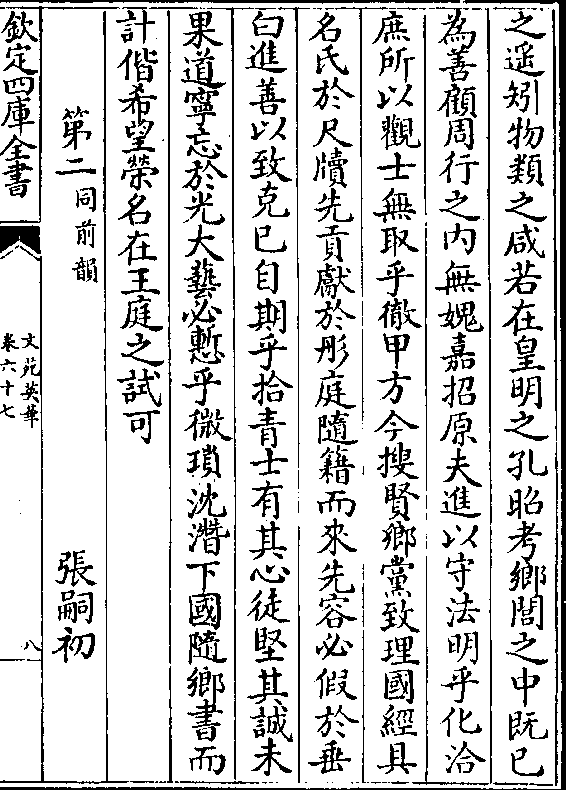 之遥矧物類之咸若在皇明之孔昭考鄉閭之中既已
為善顧周行之内無媿嘉招原夫進以守法明乎化洽
庶所以觀士無取乎徹甲方今搜賢鄉黨致理國經具
名氏於尺牘先貢獻於彤庭隨籍而來先容必假於垂
白進善以致克已自期乎拾青士有其心徒堅其誠未
果道寧忘於光大藝必慙乎微瑣沈潛下國隨鄉書而
計偕希望榮名在王庭之試可
第二同前韻 張嗣初
欽定四庫全書
文苑英華
卷六十七
八